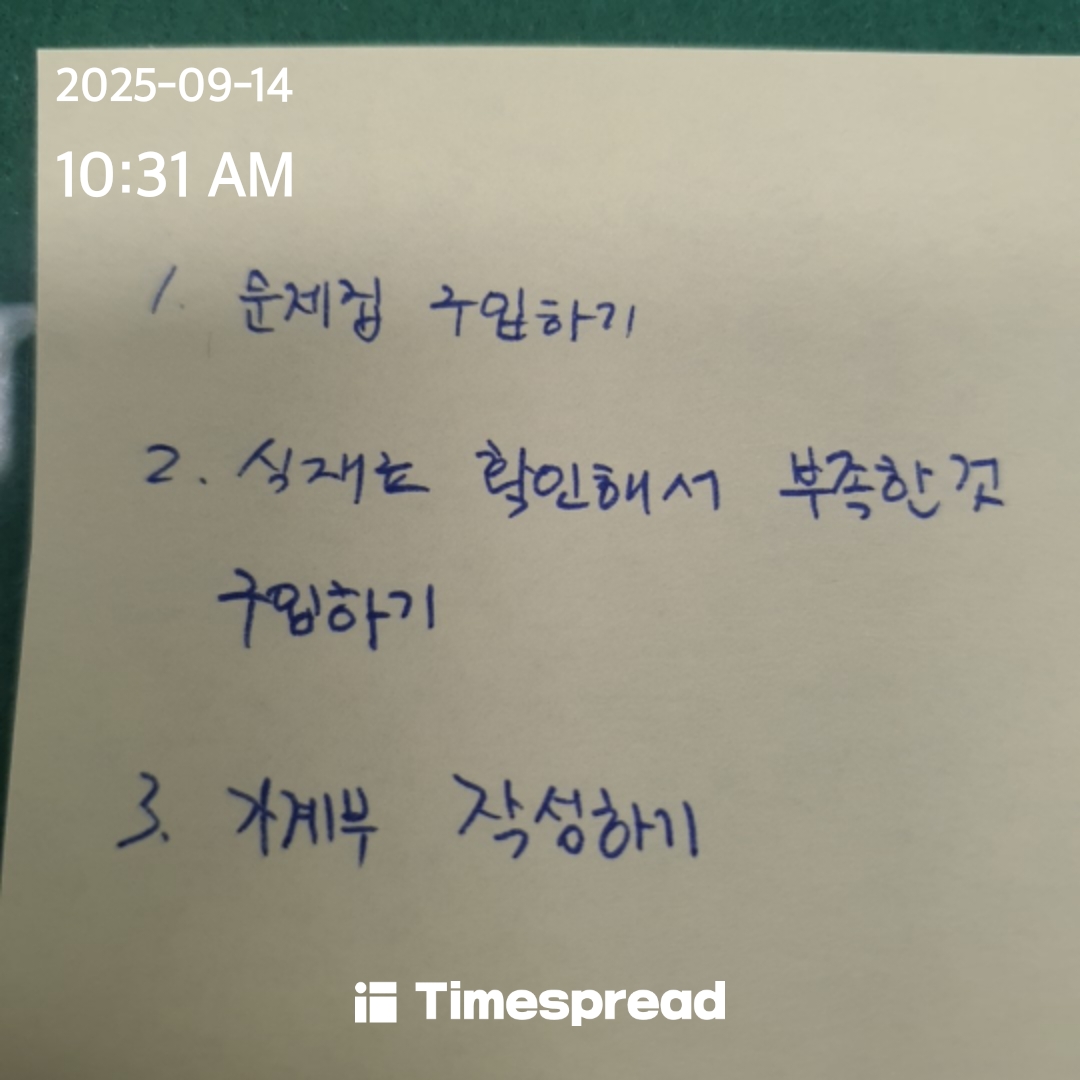 2025-09-14
10:31 AM
1. 문제집 구입하기
2. 식재료 확인해서 부족한 것
구입하기
3. 가계부 작성하기
Timespread